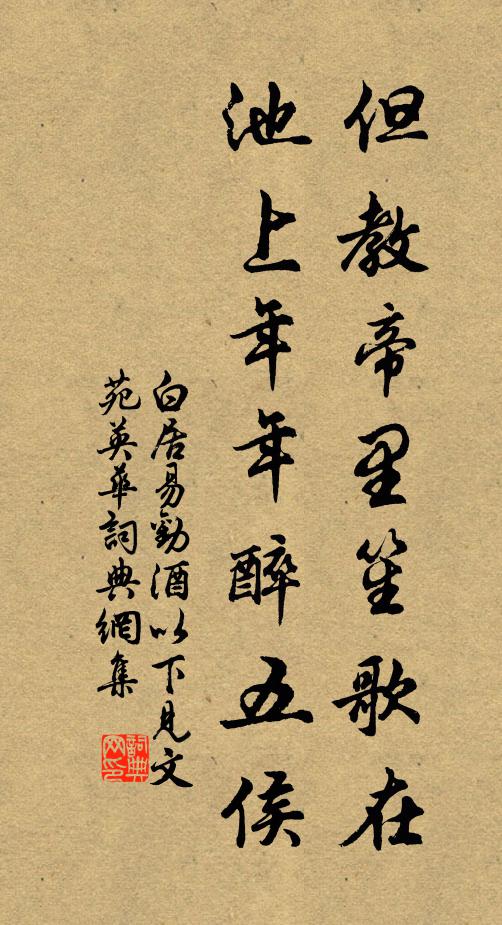 但教帝里笙歌在
池上年年醉五侯
白居易勸酒以下見文
苑英華詞典網集
詞典
网印